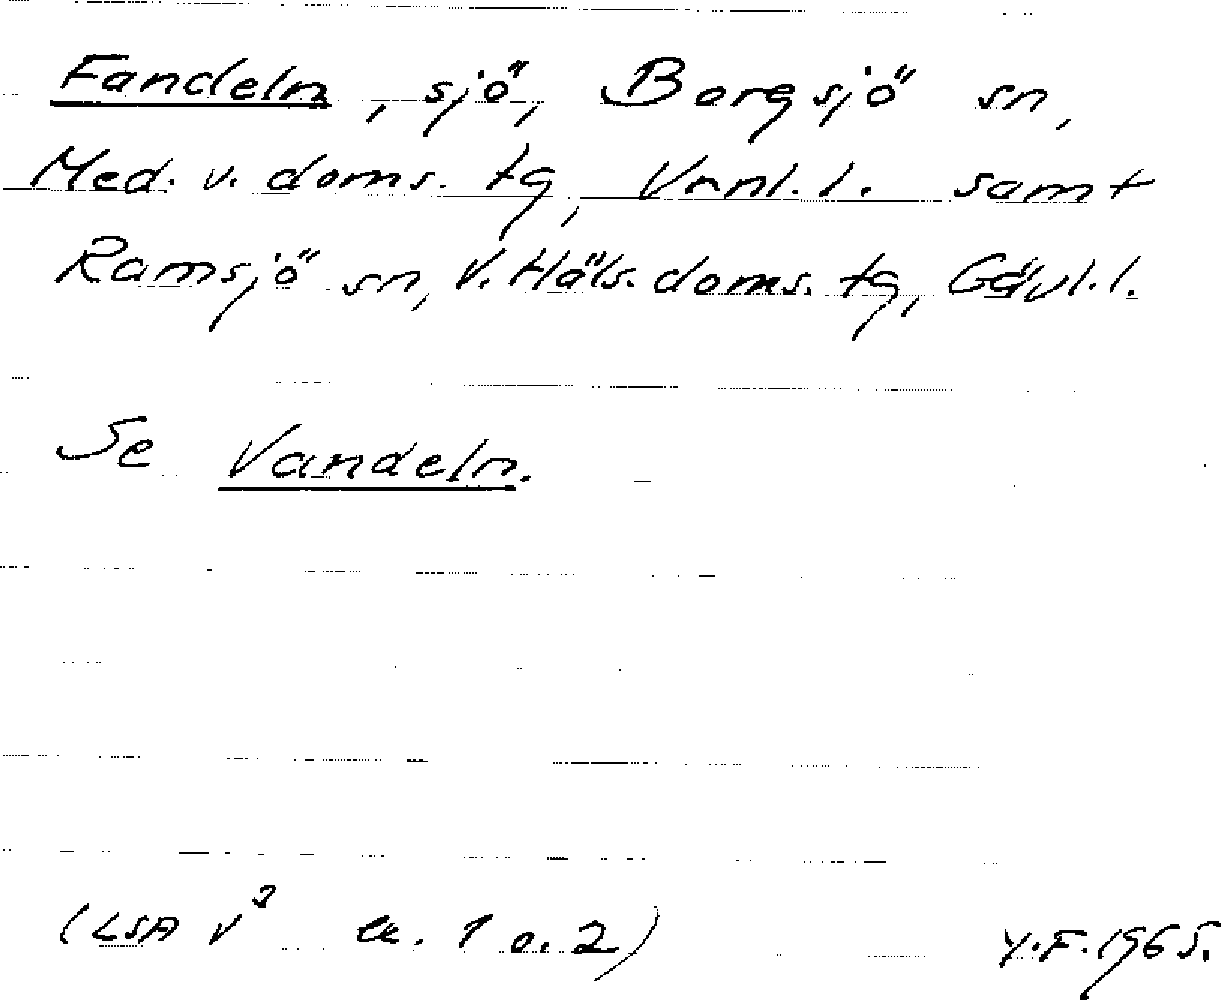 Fandeln, sjö, Borgsjö sn,
Med. v. doms. tg, Vnnl. l. samt
Ramsjö sn, V. Häls. doms. tg, Gävl. l.
Se Vandeln.
(LSA V³ a. 1 o. 2) Y.F. 1965.